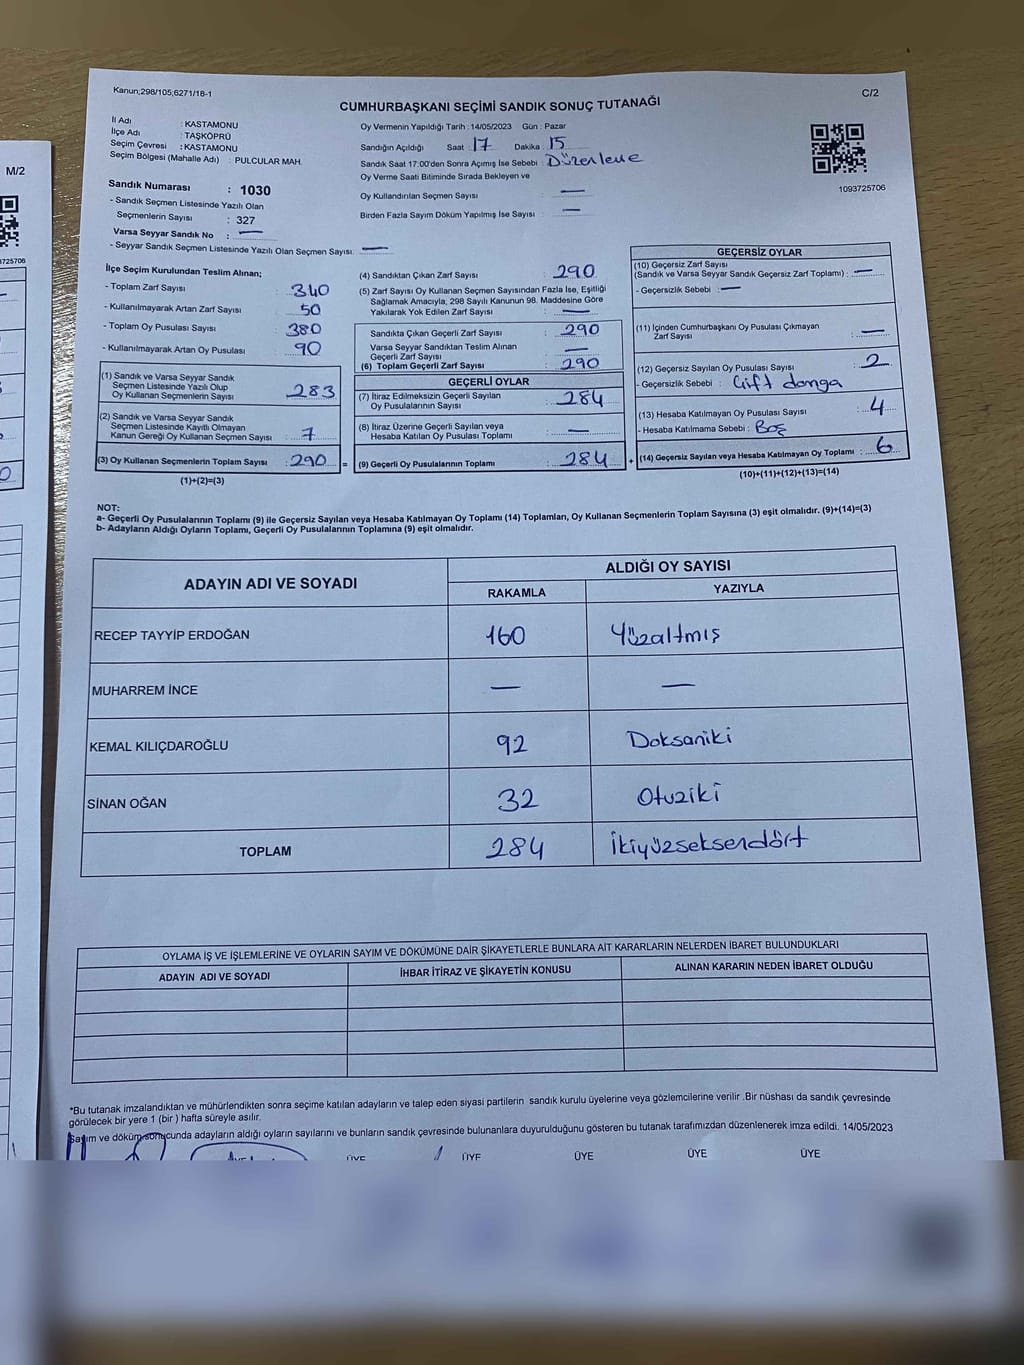 Kanun;298/105;6271/18-1
C/2
CUMHURBAŞKANI SEÇİMİ SANDIK SONUÇ TUTANAĞI
İl Adı : KASTAMONU
İlçe Adı : TAŞKÖPRÜ
Seçim Çevresi : KASTAMONU
Seçim Bölgesi (Mahalle Adı) : PULCULAR MAH.
Sandık Numarası : 1030
- Sandık Seçmen Listesinde Yazılı Olan
Seçmenlerin Sayısı : 327
Varsa Seyyar Sandık No : —
- Seyyar Sandık Seçmen Listesinde Yazılı Olan Seçmen Sayısı: —
Oy Vermenin Yapıldığı Tarih : 14/05/2023 Gün : Pazar
Sandığın Açıldığı Saat : 17 Dakika : 15
Sandık Saat 17:00'den Sonra Açımış İse Sebebi : Düzenleme
Oy Verme Saati Bitiminde Sırada Bekleyen ve
Oy Kullandırılan Seçmen Sayısı : —
Birden Fazla Sayım Döküm Yapılmış İse Sayısı : —
1093725706
İlçe Seçim Kurulundan Teslim Alınan;
- Toplam Zarf Sayısı : 340
- Kullanılmayarak Artan Zarf Sayısı : 50
- Toplam Oy Pusulası Sayısı : 380
- Kullanılmayarak Artan Oy Pusulası : 90
(1) Sandık ve Varsa Seyyar Sandık
Seçmen Listesinde Yazılı Olup
Oy Kullanan Seçmenlerin Sayısı : 283
(2) Sandık ve Varsa Seyyar Sandık
Seçmen Listesinde Kayıtlı Olmayan
Kanun Gereği Oy Kullanan Seçmen Sayısı : 7
(3) Oy Kullanan Seçmenlerin Toplam Sayısı : 290 =
(1)+(2)=(3)
(4) Sandıktan Çıkan Zarf Sayısı : 290
(5) Zarf Sayısı Oy Kullanan Seçmen Sayısından Fazla İse, Eşitliği
Sağlamak Amacıyla, 298 Sayılı Kanunun 98. Maddesine Göre
Yakılarak Yok Edilen Zarf Sayısı : —
Sandıkta Çıkan Geçerli Zarf Sayısı : 290
Varsa Seyyar Sandıktan Teslim Alınan
Geçerli Zarf Sayısı : —
(6) Toplam Geçerli Zarf Sayısı : 290
GEÇERLİ OYLAR
(7) İtiraz Edilmeksizin Geçerli Sayılan
Oy Pusulalarının Sayısı : 284
(8) İtiraz Üzerine Geçerli Sayılan veya
Hesaba Katılan Oy Pusulası Toplamı : —
(9) Geçerli Oy Pusulalarının Toplamı : 284 +
GEÇERSİZ OYLAR
(10) Geçersiz Zarf Sayısı
(Sandık ve Varsa Seyyar Sandık Geçersiz Zarf Toplamı) : —
- Geçersizlik Sebebi : —
(11) İçinden Cumhurbaşkanı Oy Pusulası Çıkmayan
Zarf Sayısı : —
(12) Geçersiz Sayılan Oy Pusulası Sayısı : 2
- Geçersizlik Sebebi : Çift damga
(13) Hesaba Katılmayan Oy Pusulası Sayısı : 4
- Hesaba Katılmama Sebebi : Boş
(14) Geçersiz Sayılan veya Hesaba Katılmayan Oy Toplamı : 6
(10)+(11)+(12)+(13)=(14)
NOT:
a- Geçerli Oy Pusulalarının Toplamı (9) ile Geçersiz Sayılan veya Hesaba Katılmayan Oy Toplamı (14) Toplamları, Oy Kullanan Seçmenlerin Toplam Sayısına (3) eşit olmalıdır. (9)+(14)=(3)
b- Adayların Aldığı Oyların Toplamı, Geçerli Oy Pusulalarının Toplamına (9) eşit olmalıdır.
ADAYIN ADI VE SOYADI
ALDIĞI OY SAYISI
RAKAMLA YAZIYLA
RECEP TAYYİP ERDOĞAN 160 Yüzaltmış
MUHARREM İNCE — —
KEMAL KILIÇDAROĞLU 92 Doksaniki
SİNAN OĞAN 32 Otuziki
TOPLAM 284 İkiyüzseksendört
OYLAMA İŞ VE İŞLEMLERİNE VE OYLARIN SAYIM VE DÖKÜMÜNE DAİR ŞİKAYETLERLE BUNLARA AİT KARARLARIN NELERDEN İBARET BULUNDUKLARI
ADAYIN ADI VE SOYADI İHBAR İTİRAZ VE ŞİKAYETİN KONUSU ALINAN KARARIN NEDEN İBARET OLDUĞU
*Bu tutanak imzalandıktan ve mühürlendikten sonra seçime katılan adayların ve talep eden siyasi partilerin sandık kurulu üyelerine veya gözlemcilerine verilir .Bir nüshası da sandık çevresinde
görülecek bir yere 1 (bir ) hafta süreyle asılır.
Sayım ve döküm sonucunda adayların aldığı oyların sayılarını ve bunların sandık çevresinde bulunanlara duyurulduğunu gösteren bu tutanak tarafımızdan düzenlenerek imza edildi. 14/05/2023
ÜYE ÜYE ÜYE ÜYE ÜYE
M/2